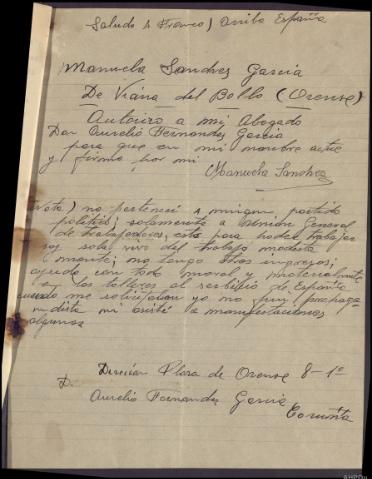 Saludo a Franco, Arriba España
Manuela Sandres Garcia
De Viana del Bollo (Orense)
Autoriso a mi Abogado
Don Aurelio Fernandes Garcia
para que en mi nombre actue
y firme por mi
Manuela Sandres
Nota) no pertenci a ningun partido
politico; solamente a Union General
de trabajadores, esto para poder trabajar
soy sola vivo del trabajo modesta
mente; no tengo otros ingresos;
ayude con todo moral y materialmente
a los talleres al serbisio de España
cuando me solicitaron yo no fuy propaga
ndista ni asisti a manifestaciones
algunas
Direcion Plasa de Orense 8-1º
D.
Aurelio Fernandes Garcia
Coruña